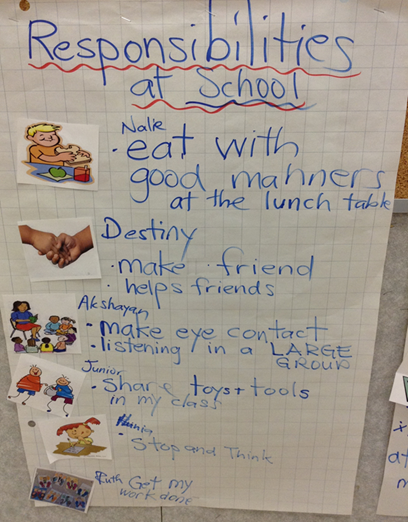 Responsibilities
at School
Nalk
• eat with
good manners
at the lunch table
Destiny
• make friend
• helps friends
Akshayan
• make eye contact
• listening in a LARGE
GROUP
Junior
• Share toys + tools
in my class
• Stop and Think
Ruth Get my
work done